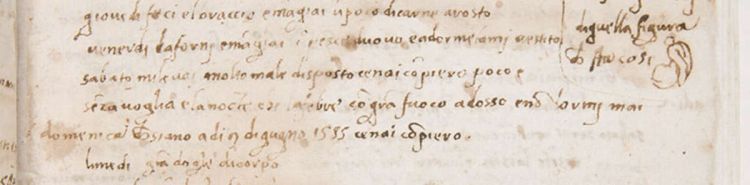 giovedi feci el braccio e magiai u poco di carne arosto
venerdi la forni e magiai pesce duovo e adorme mi vestito
sabato mi levai molto male disposto cenai cō piero poco e
senza voglia e la nocte ebi la febre cō gra fuoco adosso e nō dormi mai
domenica fssano adi 9 di gugno 1555 cenai cō piero.
lunedi
di quella figura
sta cosi